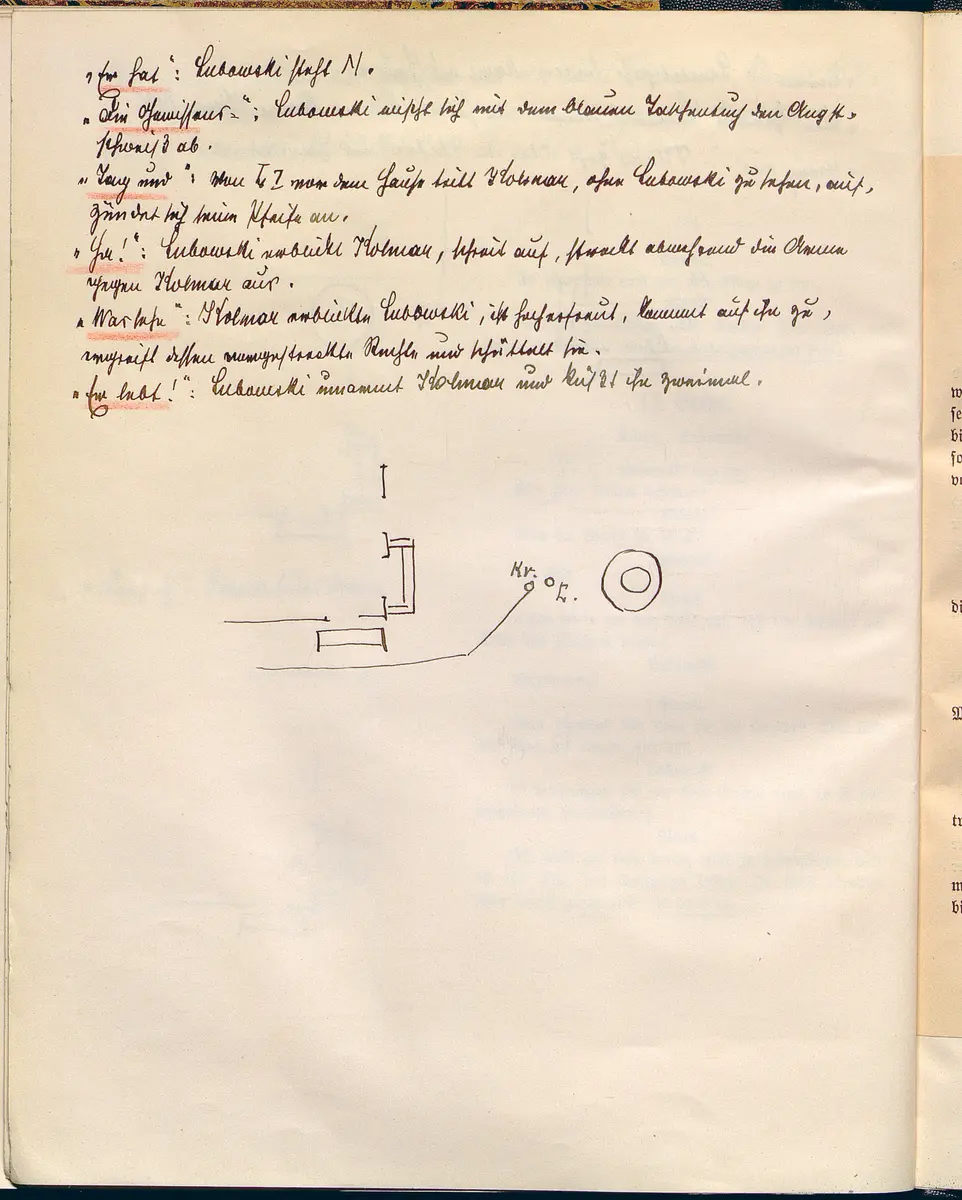 „Er hat“: Lubowski steht M.
„Die Gewissens-“: Lubowski wischt sich mit dem blauen Taschentuch den Angst-
schweiß ab.
„Tag und“: Von L I vor dem Hause tritt Kolmar, ohne Lubowski zu sehen, auf,
zündet sich seine Pfeife an.
„Ha!“: Lubowski erblickt Kolmar, schreit auf, streckt abwehrend die Arme
gegen Kolmar aus.
„Was sehe“: Kolmar erblickte Lubowski, ist hocherfreut, kommt auf ihn zu,
ergreift dessen vorgestreckte Rechte und schüttelt sie.
„Er lebt!“: Lubowski umarmt Kolmar und küßt ihn zweimal.
Kr.
L.
w
se
bi
so
vo
di
W
tr
m
bi